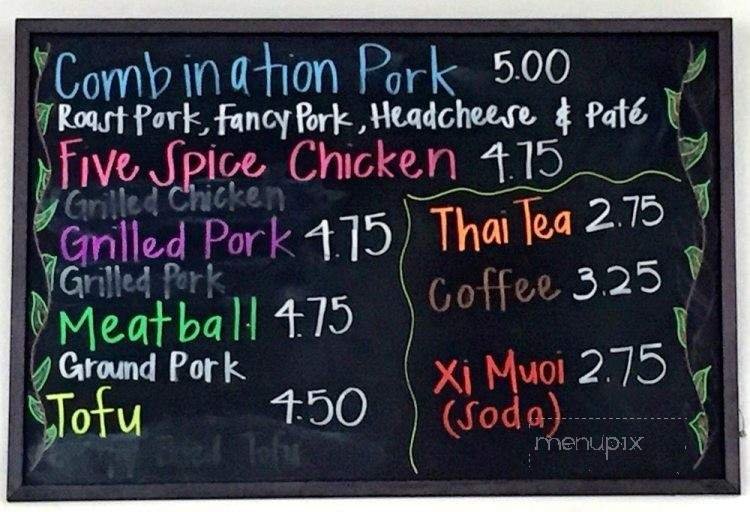 Combination Pork 5.00
Roast Pork, Fancy Pork, Headcheese & Paté
Five Spice Chicken 4.75
Grilled Chicken
Grilled Pork 4.75
Grilled Pork
Meatball 4.75
Ground Pork
Tofu 4.50
Tofu
Thai Tea 2.75
Coffee 3.25
Xi Muoi 2.75
(Soda)
menupix